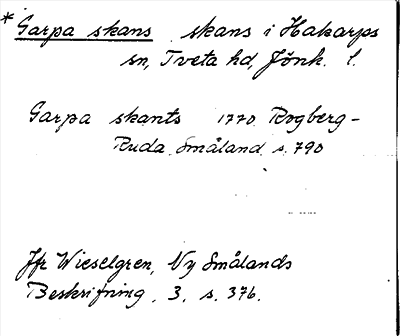 * Garpa skans skans i Hakarps
sn, Tveta hd, Jönk. l.
Garpa skants 1770 Rogberg-
Ruda Småland s. 790
Jfr Wieselgren, Ny Smålands
Beskrifning. 3, s. 376.